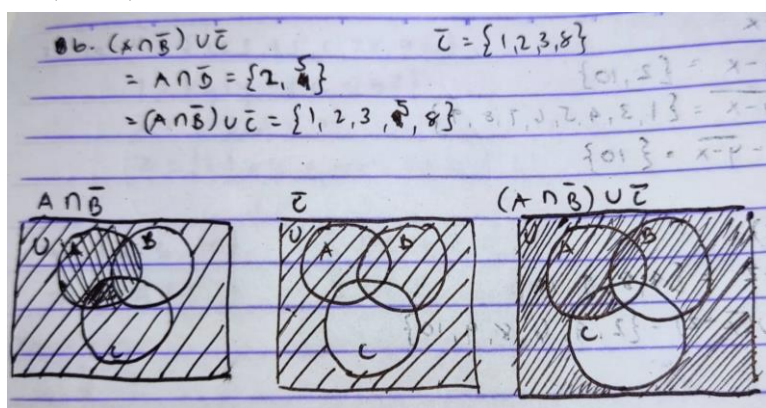 b. (A∩B̅) ∪ C̅     C̅ = {1,2,3,8}
= A∩B̅ = {2, 5}
= (A∩B̅) ∪ C̅ = {1, 2, 3, 5, 8}
A ∩ B̅     C̅     (A ∩ B̅) ∪ C̅
U A B C
U A B C
U A B C